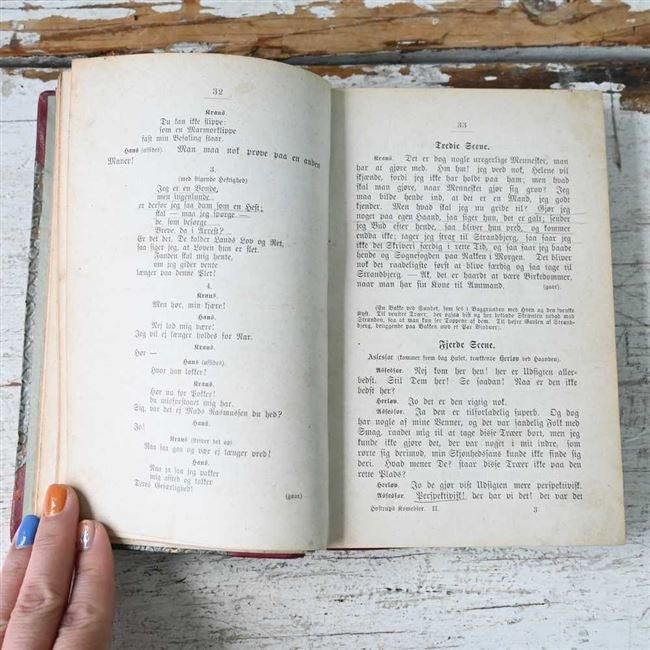 32
Krans.
Du kan ikke slippe:
som en Marmorklippe
fast min Befaling staar.
Hans (afsides). Man maa nok prøve paa en anden
Maner!
3.
(med stigende Heftighed)
Jeg er en Bonde,
men ingenlunde
er derfor jeg saa dum som en Hest;
skal — maa jeg spørge —
de, som besørge
Breve, da i Arrest?
Er det det, De kalder Lands Lov og Ret,
saa siger jeg, at Loven hun er slet.
Fanden skal mig hente,
om jeg gider vente
længer paa denne Plet!
4.
Krans.
Men hør, min kjære!
Hans.
Nej lad mig være!
Jeg vil ej længer holdes for Nar.
Krans.
Hør —
Hans (afsides).
Hvor han lokker!
Krans.
Hør nu for Pokker!
du misforstaaet mig har.
Sig, var det ej Mads Rasmussen du hed?
Hans.
Jo!
Krans (skriver det op).
Naa saa gaa og vær ej længer vred!
Hans.
Naa ja saa jeg pakker
mig afsted og takker
Deres Gefærlighed!
(gaar)
33
Tredie Scene.
Krans. Det er dog nogle urgerlige Mennesker, man
har at gjøre med. Hm hm! jeg ved nok, Helene vil
skjænde, fordi jeg ikke har holdt paa ham; men hvad
skal man gjøre, naar Mennesket gjør sig grov? Jeg
maa bilde hende ind, at det er en Mand, jeg godt
kjender. Men hvad skal jeg nu gribe til? Gjør jeg
noget paa egen Haand, saa siger hun, det er galt; sender
jeg Bud efter hende, saa bliver hun vred, og kommer
endda ikke; tager jeg strax til Strandbjerg, saa faar jeg
ikke det Skriveri færdig i rette Tid, og saa faar jeg baade
hende og Sognefogden paa Nakken i Morgen. Det bliver
nok det raadeligste først at blive færdig og saa tage til
Strandbjerg. — Ak, det er haardt at være Birkedommer,
naar man har sin Kone til Amtmand.
(gaar)
(En Bakke ved Sundet, som ses i Baggrunden med Hven og den svenske
Kyst. Til venstre Træer,
Fjerde Scene.
Assessor (kommer frem bag Huset, trækkende Herløv ved Haanden).
Assessor. Nej kom her hen! her er Udsigten aller-
bedst. Stil Dem her! Se saadan! Naa er den ikke
bedst her?
Herløv. Jo det er den rigtig nok.
Assessor. Ja den er tilforladelig superb. Og dog
har nogle af mine Venner, og det var sandelig Folk med
Smag, raadet mig til at tage disse Træer bort, men jeg
kunde ikke gjøre det, der var noget i mit indre, som
rørte sig derimod, min Skjønhedssans kunde ikke finde sig
deri. Hvad mener De? staar disse Træer ikke paa den
rette Plads?
Herløv. Jo de gjør vist Udsigten mere perspektivisk.
Assessor. Perspektivisk! der har vi det! det var det
Hostrups Komedier. II. 3